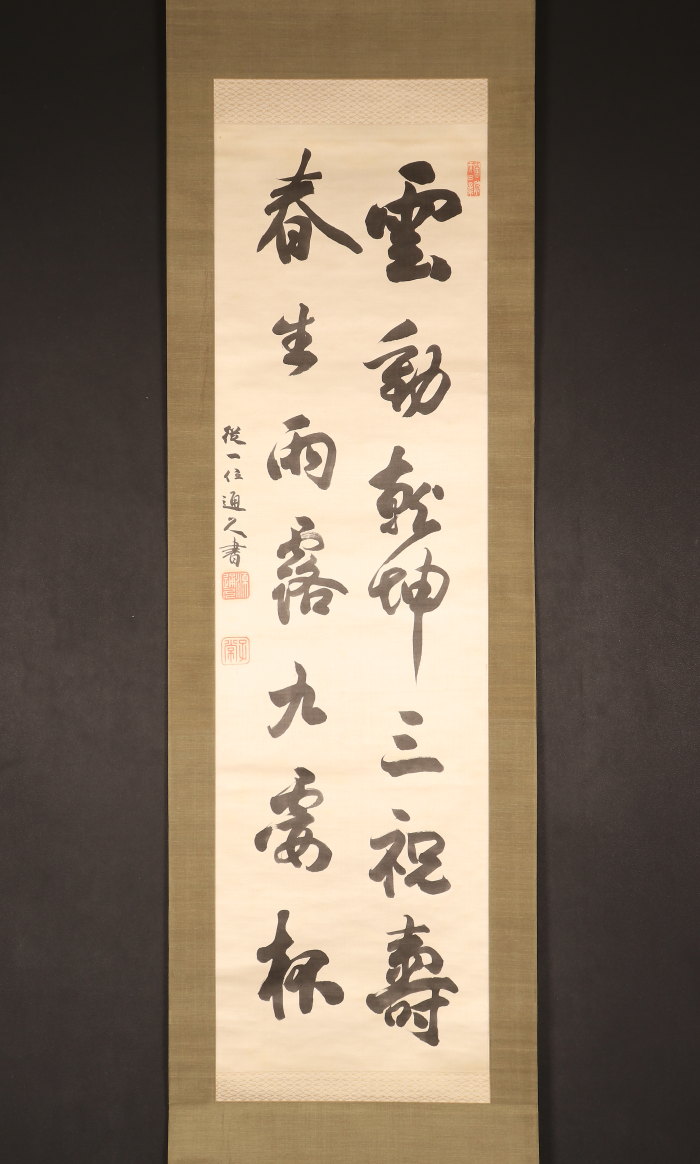 雲動乾坤三祝壽
春生雨露九霞杯
從一位通久書